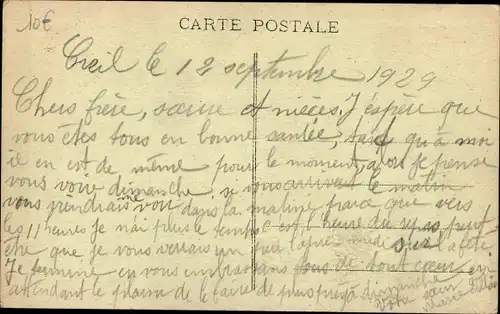 10€
CARTE POSTALE
Creil le 12 septembre 1929
Chers frère, sœur et nièces, J'éspère que
vous êtes tous en bonne santée, quà moi
il en est de même pour le moment, alors Je pense
vous voir dimanche, si vous le matin
vous voir dans la matinée parce que vers
les 11 heures je n'ai plus le temps c'est l'heure du repas peut
être que je vous verrais un peu l'après midi sur la fête
Je termine en vous embrassant tous de tout cœur en
attendant le plaisir de le faire de plus près dimanche
Votre sœur
Marie